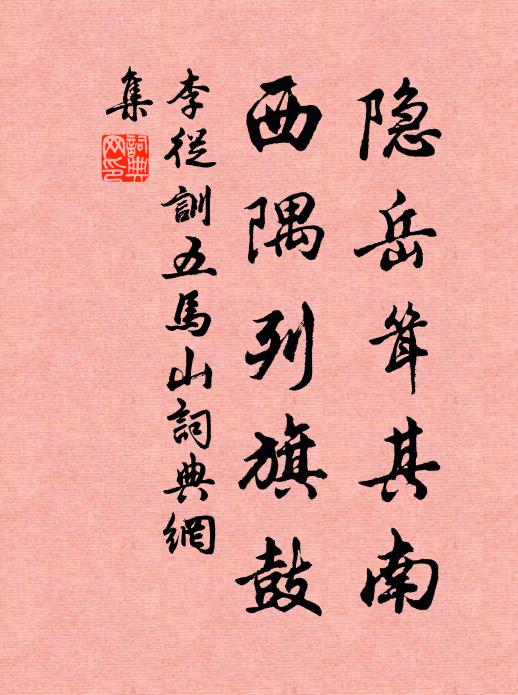 隐岳耸其南
西隅列旗鼓
李從訓五馬山詞典網
集
詞典网印